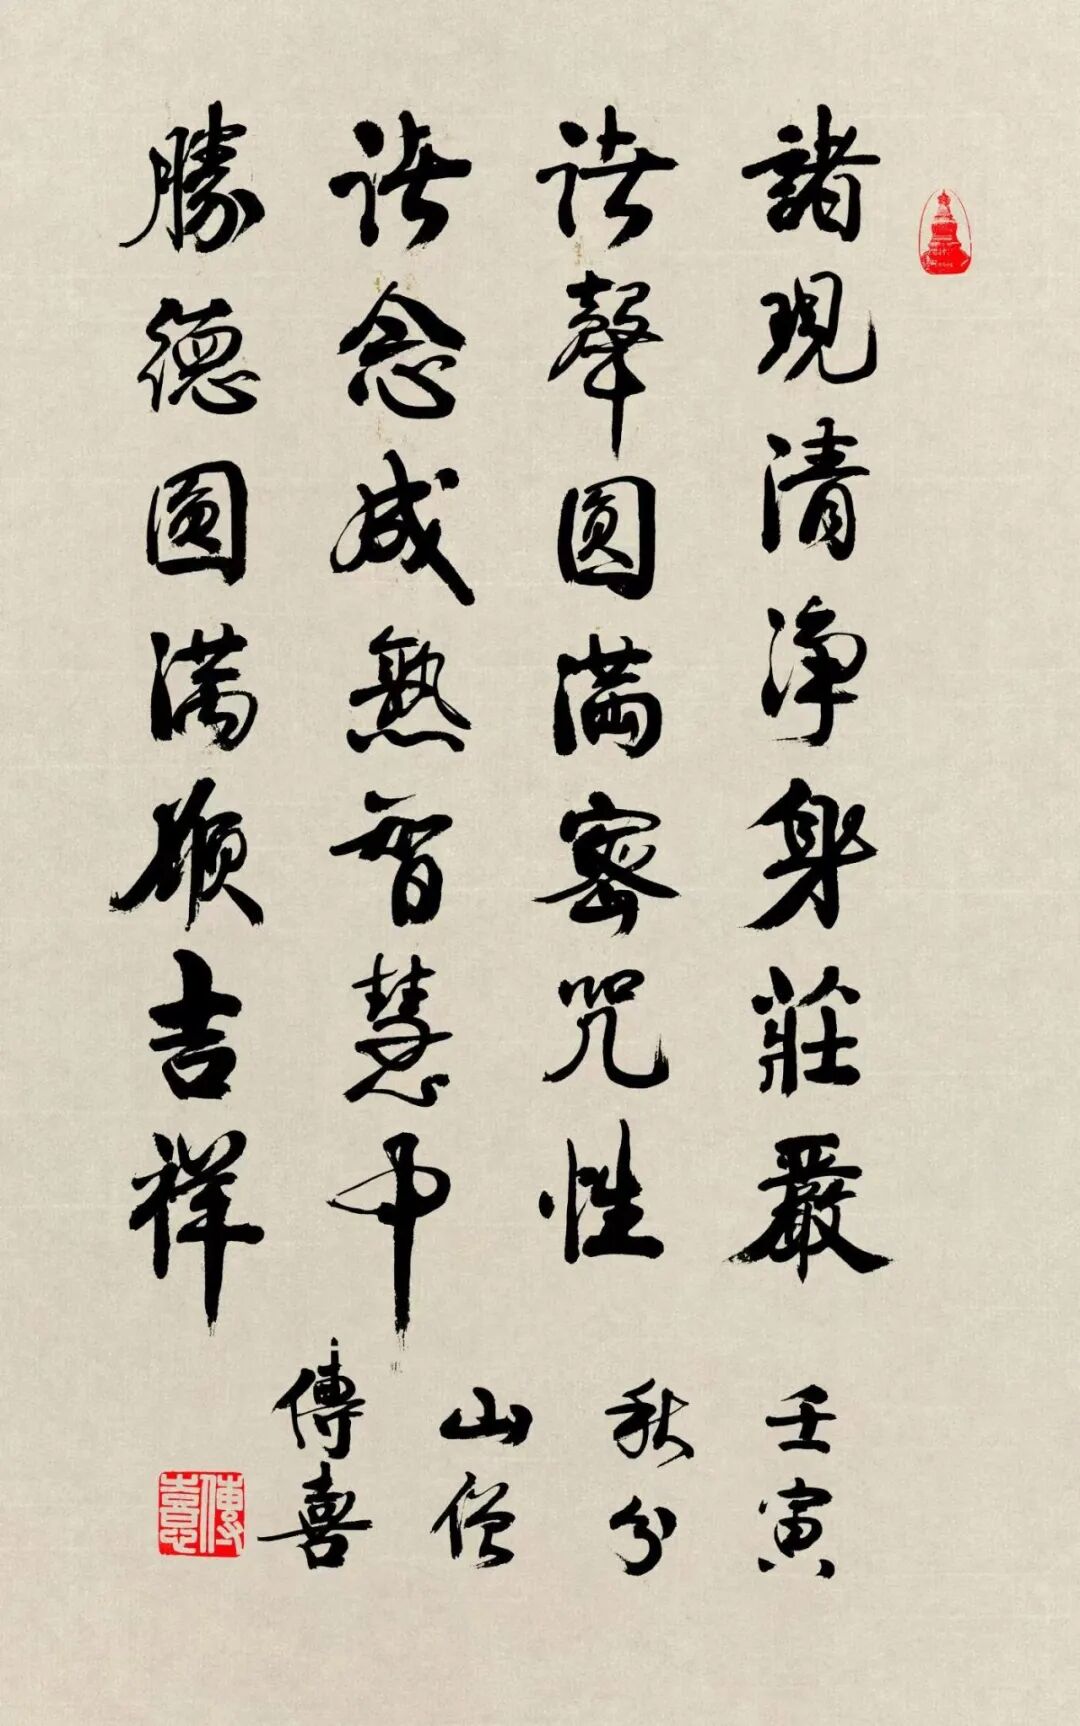 諸現清淨身莊嚴
诸聲圆滿密咒性
诸念成熟智慧中
勝德圓满願吉祥
壬寅
秋分
山僧
傳喜
傳喜